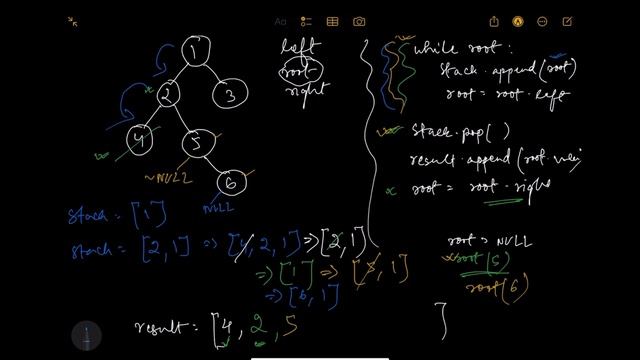 Aa
1
2
3
4
5
6
~NULL
NULL
left
root
right
while root :
stack . append (root)
root = root . left
stack . pop ( )
result . append (root .
root = root . right
root = NULL
root (5)
root (6)
stack = [1]
stack = [2, 1] => [4, 2, 1] => [2, 1]
=> [1] => [5, 1]
=> [6, 1]
result = [4, 2, 5 ]